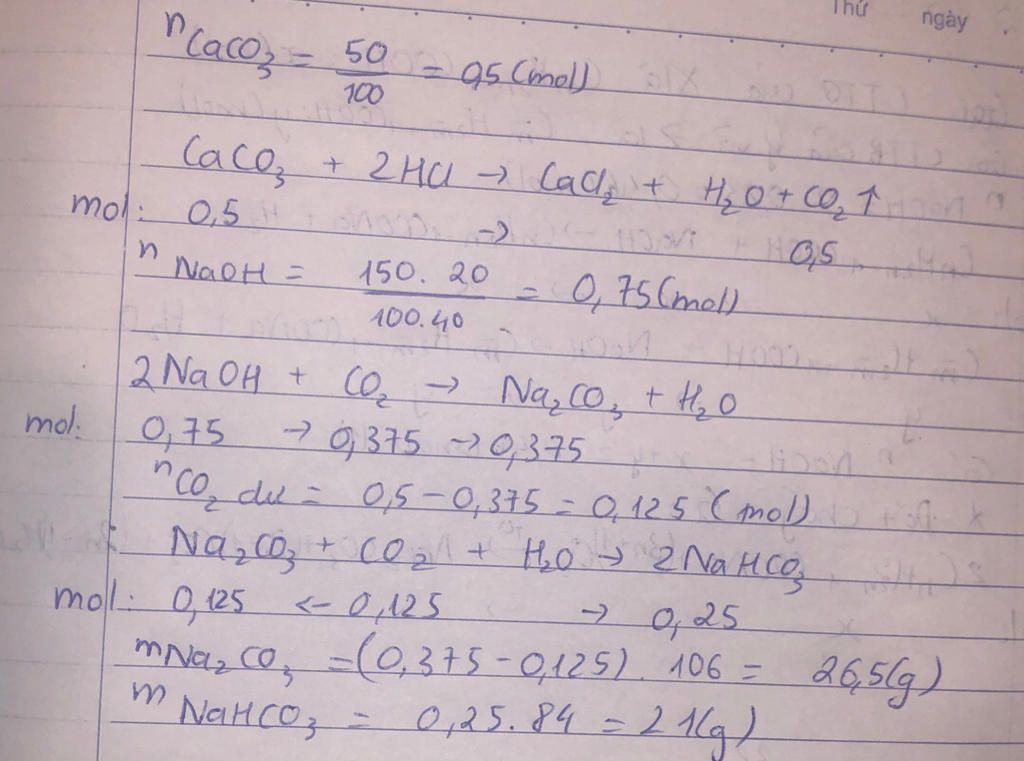 Thứ ngày
nCaCO₃ = 50/100 = 0,5 (mol)
CaCO₃ + 2HCl → CaCl₂ + H₂O + CO₂↑
mol: 0,5 → 0,5
nNaOH = 150. 20/100.40 = 0,75 (mol)
2NaOH + CO₂ → Na₂CO₃ + H₂O
mol: 0,75 → 0,375 → 0,375
nCO₂ dư = 0,5 - 0,375 = 0,125 (mol)
Na₂CO₃ + CO₂ + H₂O → 2NaHCO₃
mol: 0,125 ← 0,125 → 0,25
mNa₂CO₃ = (0,375 - 0,125). 106 = 26,5(g)
mNaHCO₃ = 0,25.84 = 21(g)